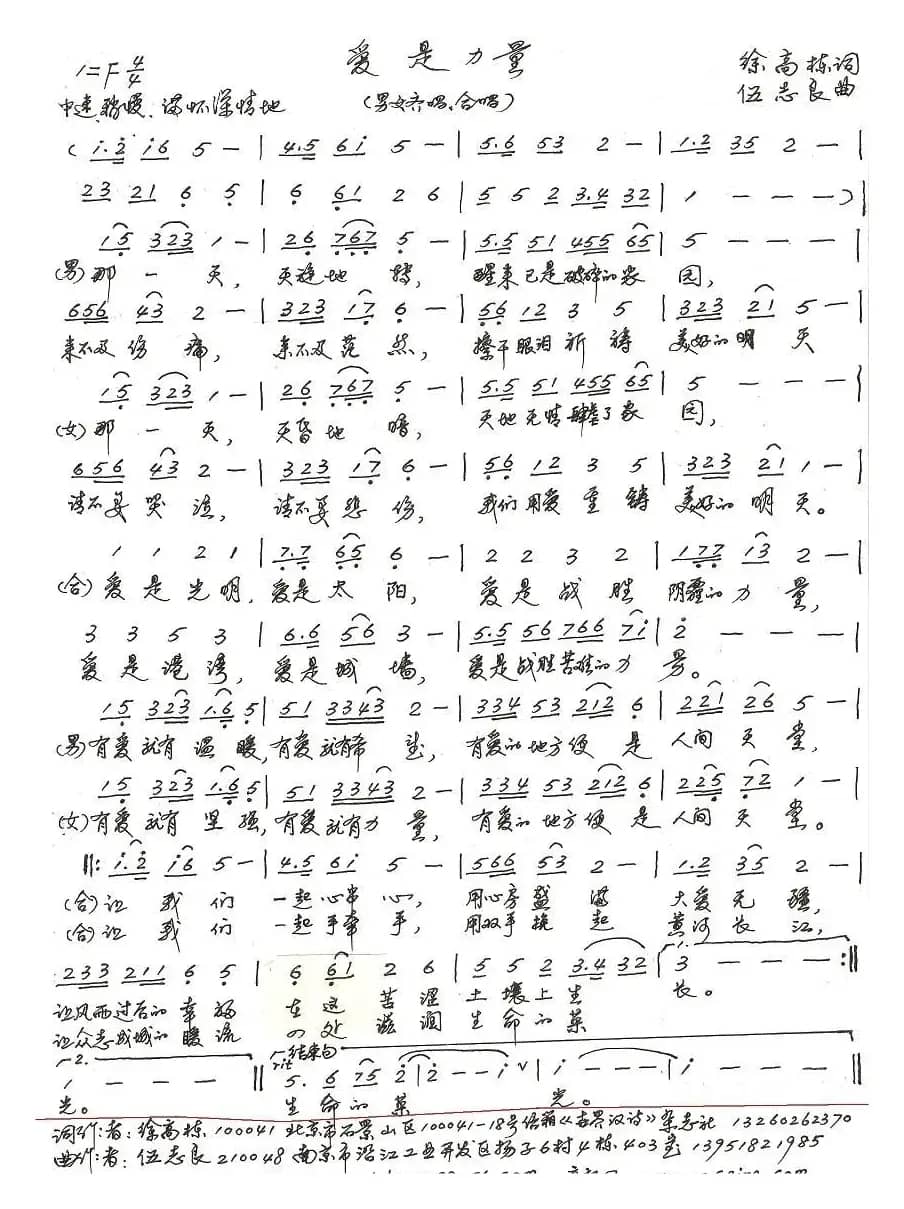 爱是力量
1=F 4/4
徐高栋词
中速、稍慢、满怀深情地
(男女齐唱、合唱)
伍志良曲
( i.2 i6 5 — | 4.5 6i 5 — | 5.6 53 2 — | 1.2 35 2 — |
23 21 6 5 | 6 61 2 6 | 5 5 2 3.4 32 | 1 — — — ) |
15 323 1 — | 26 767 5 — | 5.5 51 455 65 | 5 — — — |
(男)那一天, 天旋地转, 醒来已是破碎的家园,
656 43 2 — | 323 17 6 — | 56 12 3 5 | 323 21 5 — |
来不及伤痛, 来不及茫然, 擦干眼泪祈祷 美好的明天
15 323 1 — | 26 767 5 — | 5.5 51 455 65 | 5 — — — |
(女)那一天, 天昏地暗, 天地无情肆虐了家园,
656 43 2 — | 323 17 6 — | 56 12 3 5 | 323 21 1 — |
请不要哭泣, 请不要悲伤, 我们用爱重铸 美好的明天。
1 1 2 1 | 7.7 65 6 — | 2 2 3 2 | 177 13 2 — |
(合)爱是光明, 爱是太阳, 爱是战胜 阴霾的力量,
3 3 5 3 | 6.6 56 3 — | 5.5 56 766 7i | 2 — — — |
爱是港湾, 爱是城墙, 爱是战胜苦难的力量。
15 323 1.6 5 | 51 3343 2 — | 334 53 212 6 | 221 26 5 — |
(男)有爱就有温暖, 有爱就有希望, 有爱的地方便是 人间天堂,
15 323 1.6 5 | 51 3343 2 — | 334 53 212 6 | 225 72 1 — |
(女)有爱就有坚强, 有爱就有力量, 有爱的地方便是 人间天堂。
‖: i.2 i6 5 — | 4.5 6i 5 — | 566 53 2 — | 1.2 35 2 — |
(合)让我们 一起心牵心, 用心房盛满 大爱无疆,
(合)让我们 一起手牵手, 用双手挽起 黄河长江,
1.
233 211 6 5 | 6 61 2 6 | 5 5 2 3.4 32 | 3 — — — :‖
让风雨过后的幸福 在这苦涩土壤上生长。
让众志成城的暖流 四处滋润生命的荣
2.
结束句
rit
1 — — — ‖ 5. 6 75 2 | 2 — — i ∨ | i — — — | i — — — ‖
光。 生命的荣 光。
词作者: 徐高栋 100041 北京市石景山区100041-18号信箱《世界汉诗》杂志社 13260262370
曲作者: 伍志良 210048 南京市沿江工业开发区扬子6村4栋403室 13951821985